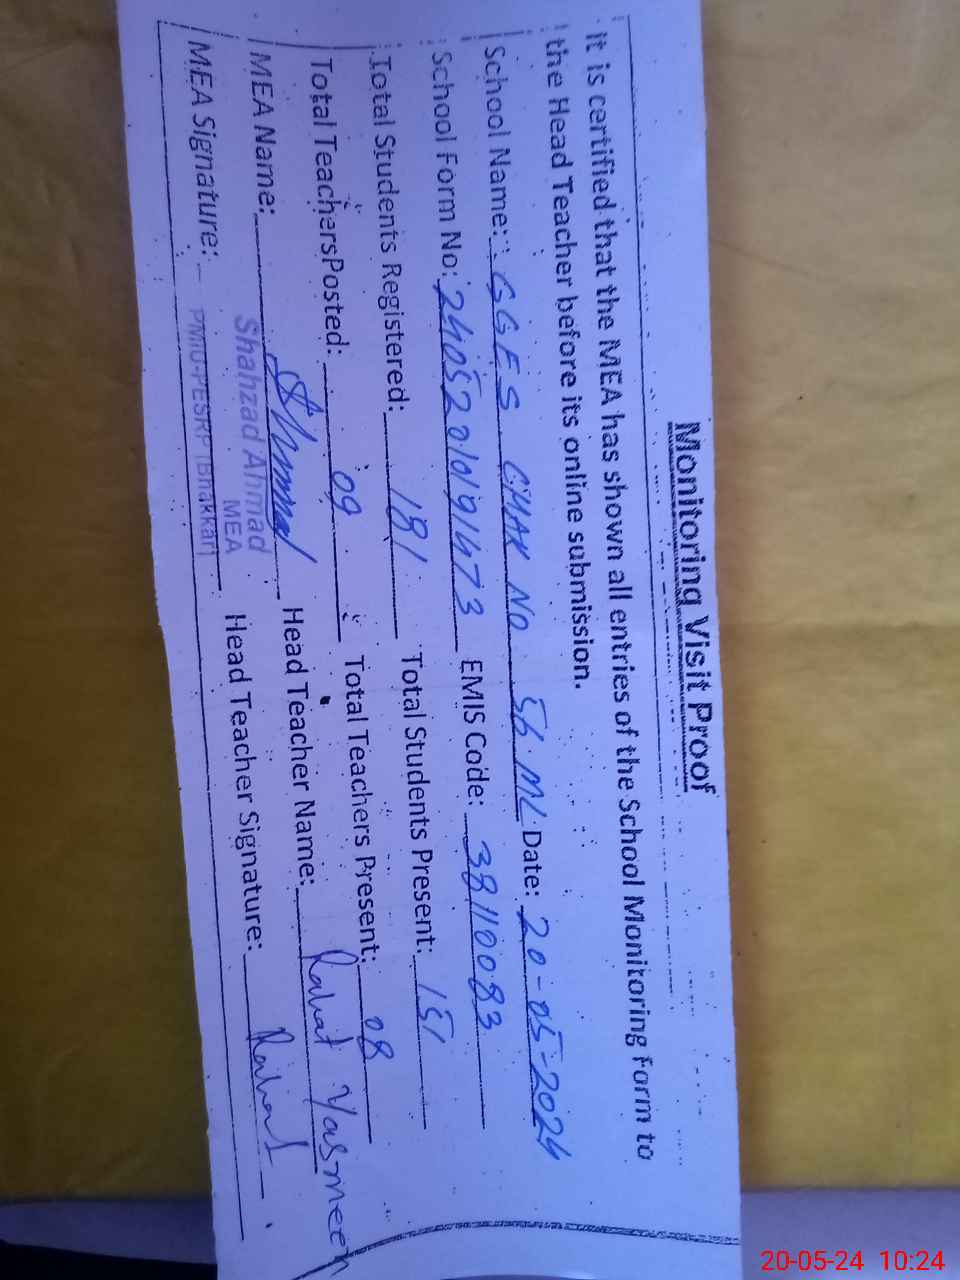 Monitoring Visit Proof
It is certified that the MEA has shown all entries of the School Monitoring Form to
the Head Teacher before its online submission.
School Name: GGES CHAK NO 56 ML Date: 20-05-2024
School Form No: 24052010191473 EMIS Code: 38110083
Total Students Registered: 181 Total Students Present: 151
Total Teachers Posted: 09 Total Teachers Present: 08
MEA Name: Head Teacher Name: Rahat Yasmeen
Shahzad Ahmad
MEA
PMIU-PESRP (Bhakkar)
MEA Signature: Head Teacher Signature: Rahat
20-05-24 10:24